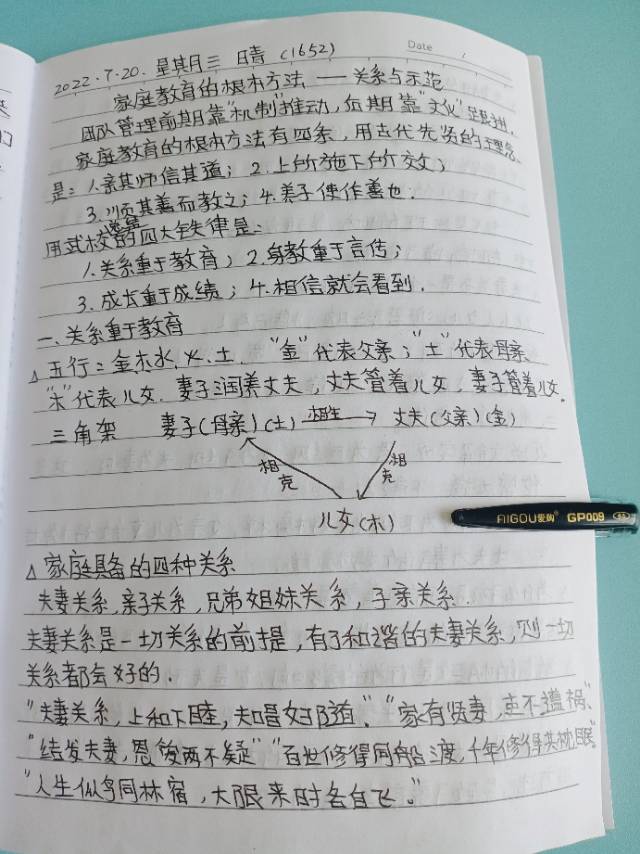 Date /
2022.7.20. 星期三 晴 (1652)
家庭教育的根本方法 — 关系与示范
团队管理前期靠"机制"推动,后期靠"文化"
家庭教育的根本方法有四条,用古代先贤的理念
是: 1.亲其师信其道; 2.上所施下所效;
3.顺其善而教之; 4.养子使作善也.
用武校的四大铁律是:
1.关系重于教育; 2.身教重于言传;
3.成长重于成绩; 4.相信就会看到.
一、关系重于教育
△五行: 金木水.火.土. "金"代表父亲; "土"代表母亲
"木"代表儿女. 妻子润养丈夫, 丈夫管着儿女, 妻子管着儿女.
三角架 妻子(母亲)(土) 相生 丈夫(父亲)(金)
相克 相克
儿女(木)
AIGOU爱购® GP009
△家庭具备的四种关系
夫妻关系,亲子关系,兄弟姐妹关系,子亲关系.
夫妻关系是一切关系的前提,有了和谐的夫妻关系,则一切
关系都会好的.
"夫妻关系,上和下睦,夫唱妇随." "家有贤妻,夫不遭祸"
"结发夫妻,恩爱两不疑" "百世修得同船渡,千年修得共枕眠"
"人生似鸟同林宿,大限来时各自飞."